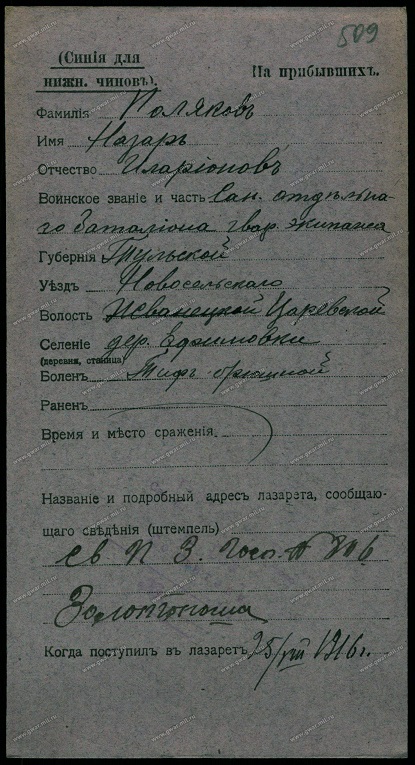 509
(Синія для
нижн. чиновъ).
На прибывшихъ.
Фамилія Поляковъ
Имя Назаръ
Отчество Иларіоновъ
Воинское званіе и часть Сан. отдѣльна-
го баталіона гвар. экипажа
Губернія Тульской
Уѣздъ Новосельскаго
Волость Жеванецкой Царевской
Селеніе дер. Ефимовки
(деревня, станица)
Боленъ Тифъ брюшной
Раненъ
Время и мѣсто сраженія
Названіе и подробный адресъ лазарета, сообщаю-
щаго свѣдѣнія (штемпель)
св П З. Госп. № 306
Золотоноша
Когда поступилъ въ лазаретъ 25/VIII 1916 г.
www.gwar.mil.ru